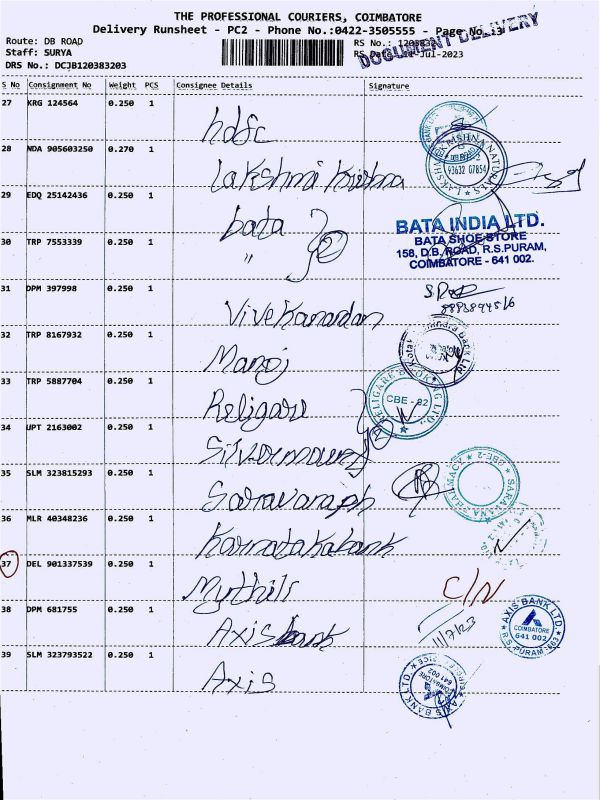 THE PROFESSIONAL COURIERS, COIMBATORE
Delivery Runsheet - PC2 - Phone No.:0422-3505555 - Page No.
Route: DB ROAD
RS No.:
Staff: SURYA
RS Date: Jul-2023
DRS No.: DCJB120383203
DOCUMENT DELIVERY
S No Consignment No Weight PCS Consignee Details Signature
27 KRG 124564 0.250 1 hdfc
28 NDA 905603250 0.270 1 Lakshmi Krishna
93632 07854
29 EDQ 25142436 0.250 1 bata
30 TRP 7553339 0.250 1 " 2
BATA INDIA LTD.
BATA SHOE STORE
158, D.B. ROAD, R.S.PURAM,
COIMBATORE - 641 002.
31 DPM 397998 0.250 1 Vivekanandan
32 TRP 8167932 0.250 1 Manoj
33 TRP 5887704 0.250 1 Religare
CBE - 02
34 UPT 2163002 0.250 1
35 SLM 323815293 0.250 1
36 MLR 40348236 0.250 1 Karnataka bank
37 DEL 901337539 0.250 1 Mythili C/N
38 DPM 681755 0.250 1 Axis bank 11/7/23
AXIS BANK LTD.
COIMBATORE
641 002
R.S. PURAM
39 SLM 323793522 0.250 1 Axis
AXIS BANK LTD.